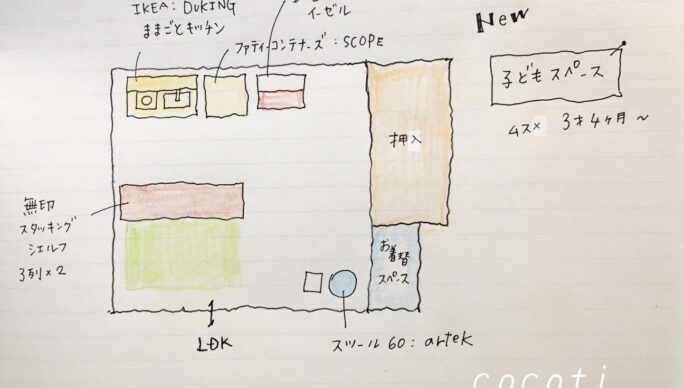 IKEA: DUKING
ままごとキッチン
イーゼル
New
ファティーコンテナーズ: SCOPE
子どもスペース
ムスメ 3才4ヶ月〜
押入
無印
スタッキング
シェルフ
3列×2
お着替
スペース
LDK
スツール60: artek
cocoti